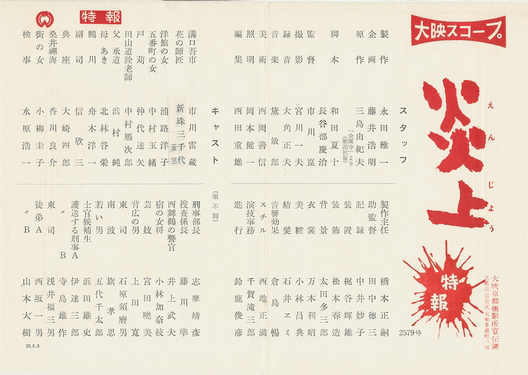 大映スコープ
炎上
えんじょう
特報
2579号
スタッフ
製作 永田雅一
企画 藤井浩明
原作 三島由紀夫
脚本 和田夏十
長谷部慶治
監督 市川崑
撮影 宮川一夫
録音 大角正夫
音楽 黛敏郎
美術 西岡善信
照明 岡本健一
編集 西田重雄
製作主任 橋本正嗣
助監督 田中徳三
記録 中井妙子
装置 梶谷輝雄
装飾 松本春造
背景 太田多三郎
衣裳 万木利昭
美粧 小林昌典
結髪 石井ヱミ
音響効果 倉島暢
スチル 西地正満
演技事務 千賀滝三郎
進行 鈴鹿俊彦
キャスト
(順不同)
溝口吾市 市川雷蔵
花の師匠 新珠三千代
洋館の女 浦路洋子
五番町の女 中村玉緒
戸苅 仲代達矢
田山道詮老師 中村鴈治郎
父承道 浜村純
母あき 北林谷栄
鶴川 舟木洋一
副司 信欣三
典座 大崎四郎
桑井禅海 香川良介
街の女 小柳圭子
検事 水原浩一
刑事部長 志摩靖彦
捜査係長 藤川準
西舞鶴の警官 井上武夫
宿の女将 小林加奈枝
芸妓 宮田暁美
背広の男 上田寛
南波 石原須磨男
若い男 旗孝思
士官候補生 五代千太郎
護送する刑事A 浜田雄史
〃B 伊達三郎
東司 寺島雄作
徒弟A 浅井福三
〃B 西坂一男
山本大樹
特報
33.6.8